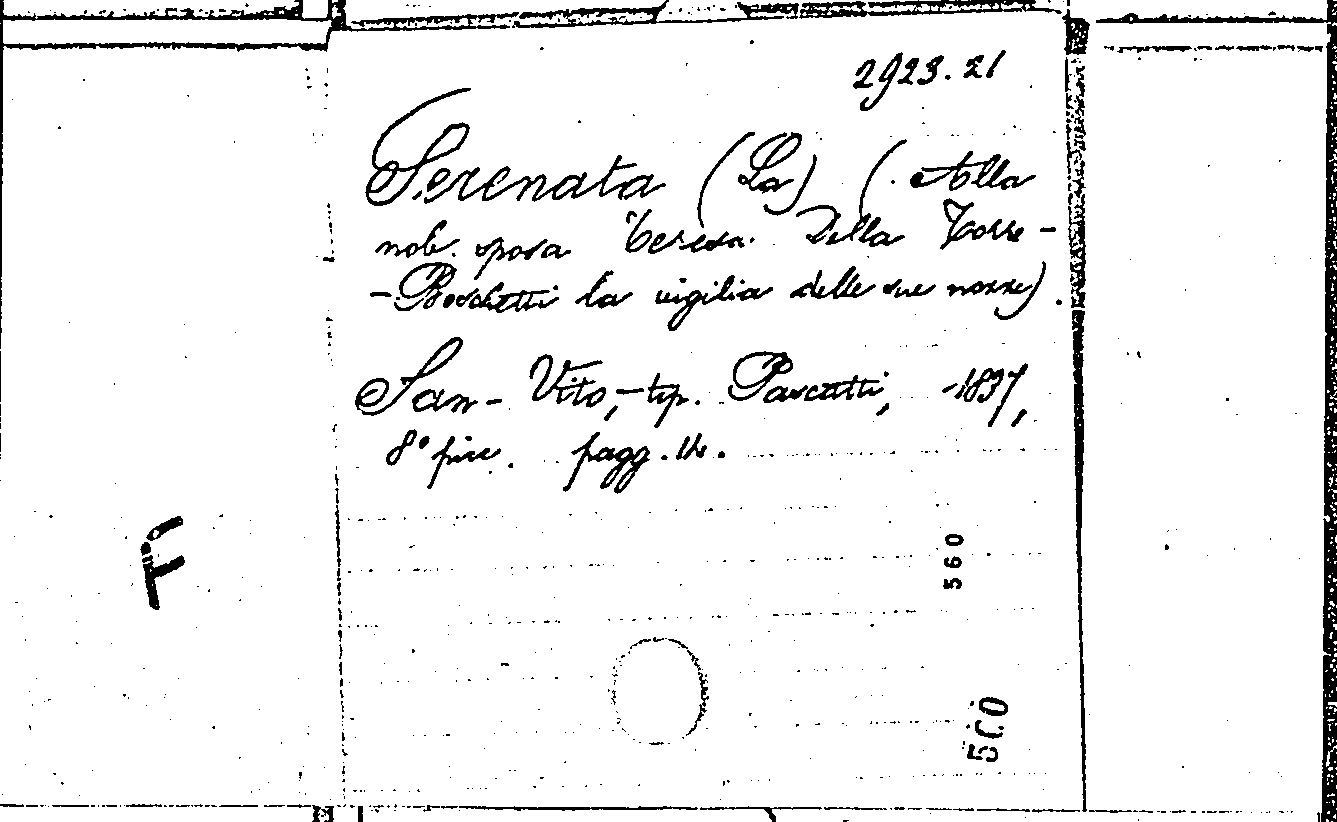 2923.21
Serenata (La) (Alla
nob. sposa Teresa Della Torre-
-Boschetti la vigilia delle sue nozze).
San-Vito, - tip. Pascatti, - 1837,
8° picc. pagg. 14.
F
560
500